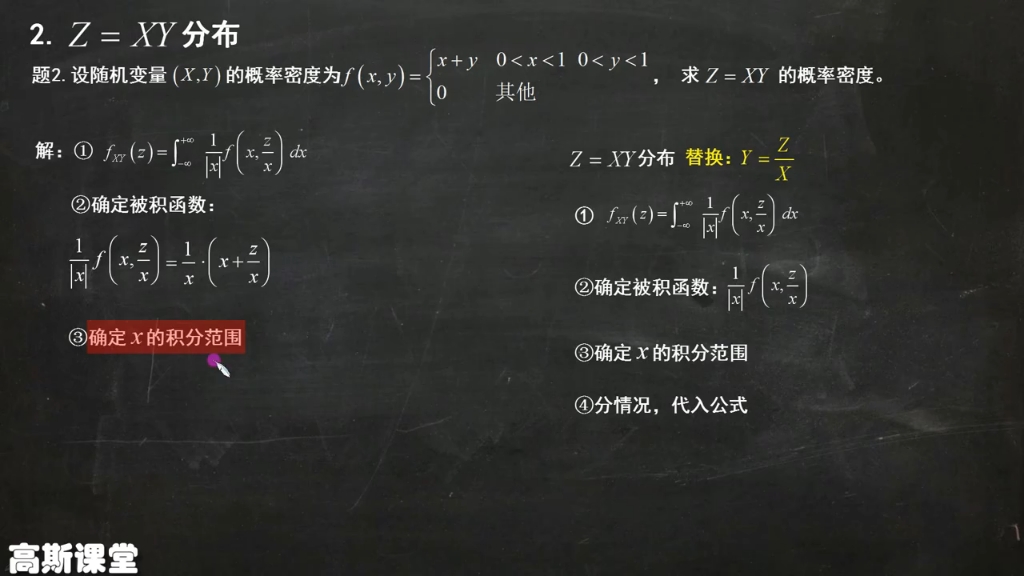 2. Z = XY 分布
题2. 设随机变量 (X,Y) 的概率密度为 f(x,y) = { x+y 0<x<1 0<y<1
0 其他 , 求 Z = XY 的概率密度。
解：① f_{XY}(z) = ∫_{-∞}^{+∞} \frac{1}{|x|} f(x, \frac{z}{x}) dx
②确定被积函数：
\frac{1}{|x|} f(x, \frac{z}{x}) = \frac{1}{x} · (x + \frac{z}{x})
③确定 x 的积分范围
Z = XY 分布 替换：Y = \frac{Z}{X}
① f_{XY}(z) = ∫_{-∞}^{+∞} \frac{1}{|x|} f(x, \frac{z}{x}) dx
②确定被积函数：\frac{1}{|x|} f(x, \frac{z}{x})
③确定 x 的积分范围
④分情况，代入公式
高斯课堂